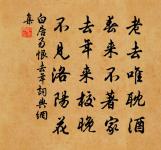 老去唯耽酒
春来不著家
去年来校晚
不见洛陽花
白居易恨去年詞典網
集